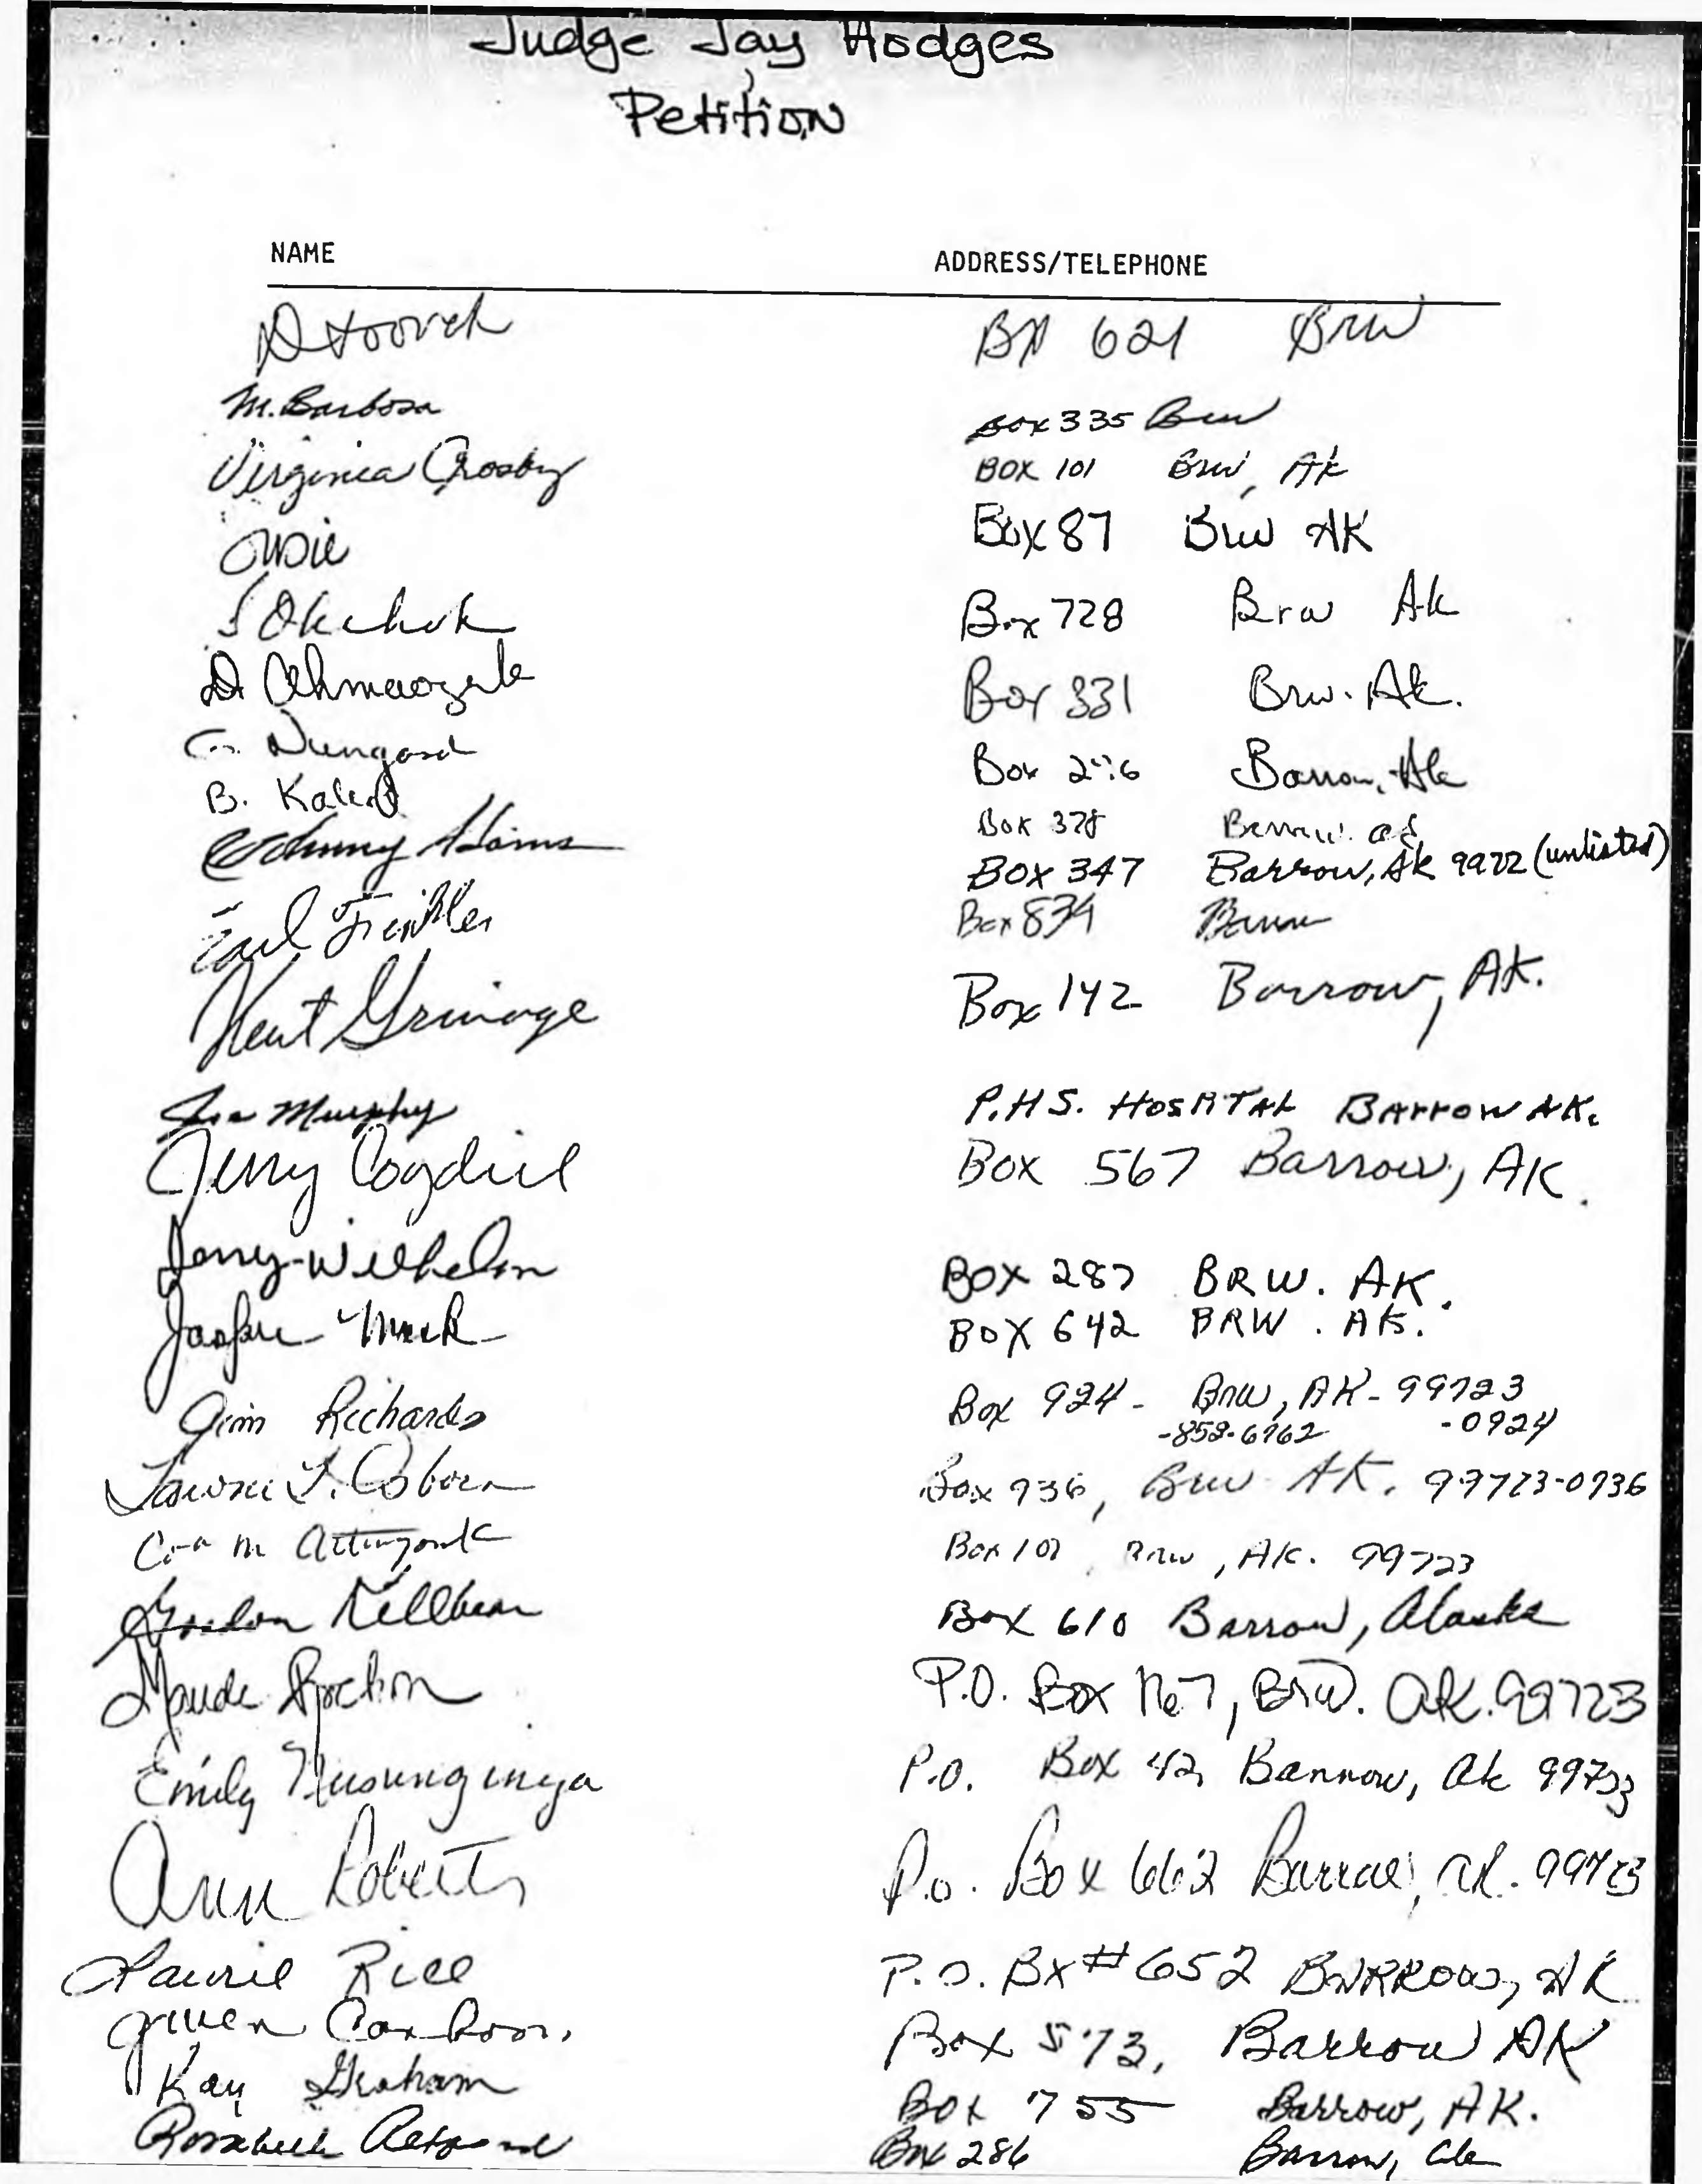 Judge Jay Hodges
Petition
NAME ADDRESS/TELEPHONE
621 BRW
M. Barbosa Box 335 Brw
Virginia Crosby Box 101 Brw, AK
Box 87 Brw AK
S Okakok Box 728 Brw Ak
D. Ahmaogak Box 331 Brw. Ak.
Box Barrow, Ak
B. Box 378 Barrow
Johnny Adams Box 347 Barrow, Ak 9972 (unlisted)
Earl Finkler Box 834 Barrow
Kent Grinage Box 142 Barrow, AK.
Joe Murphy P.H.S. HOSPITAL BARROW AK.
Jerry Cogdill Box 567 Barrow, AK.
Wilhelm BOX 287 BRW. AK.
BOX 642 BRW. AK.
Jim Richards Box 924 - Brw, AK - 99723
-852-6962 -0924
Box 936, Brw AK. 99723-0936
Box Brw, AK. 99723
Gordon Killbear Box 610 Barrow, Alaska
Maude P.O. Box Brw. AK. 99723
Emily Nusunginya P.O. Box 42, Barrow, Ak 99723
Ann Roberts P.O. Box 662 Barrow, AK. 99723
Laurie Rice P.O. Bx #652 BARROW, AK
Gwen Box 573, Barrow AK
Kay Graham Box 755 Barrow, AK.
Box 286 Barrow, Ak